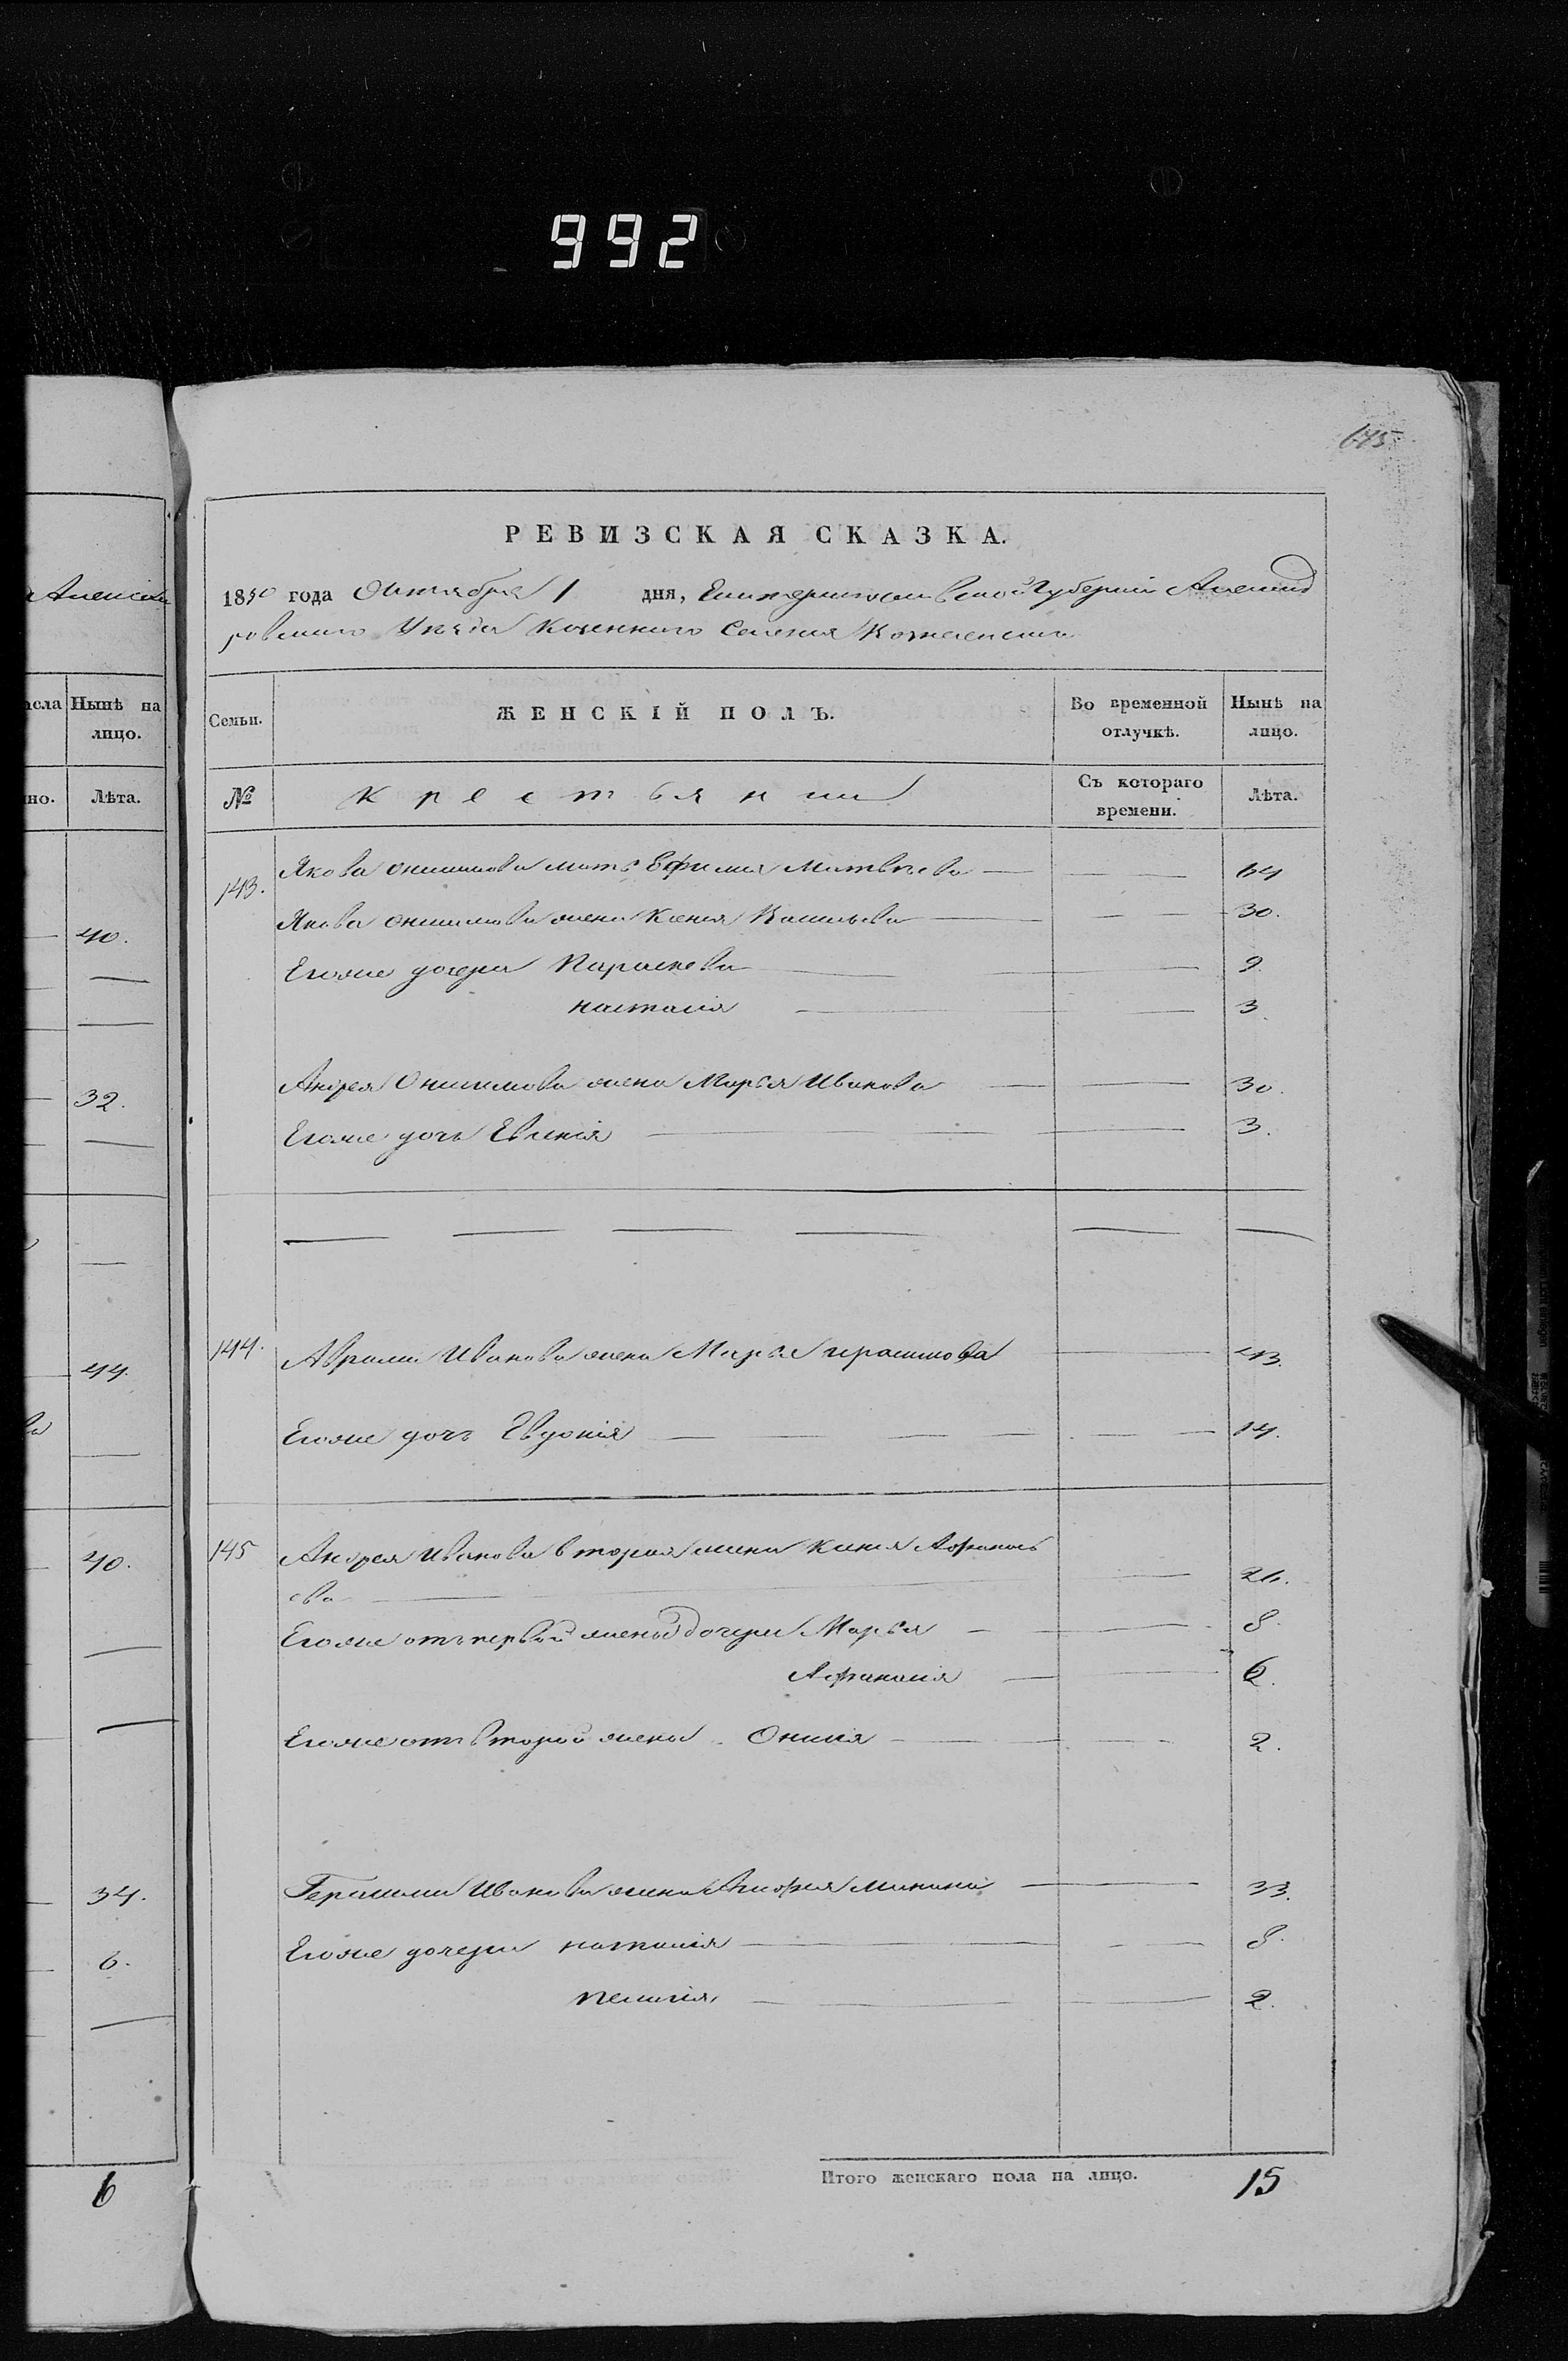 992
675
а Алексан
РЕВИЗСКАЯ СКАЗКА.
1850 года Октября 1 дня, Екатеринославской Губернiи Александ
ровскаго Уезда Казеннаго Селенiя
асла Нынѣ на лицо.
но. Лѣта.
Семьи. ЖЕНСКIЙ ПОЛЪ. Во временной отлучкѣ. Нынѣ на лицо.
№ Крестьянки Съ котораго времени. Лѣта.
143. Якова Онишкова мать Ефимiя Матвѣева 64
Якова Онисимова жена Ксенiя 30.
40.
Егоже дочери Параскева 9.
Настасiя 3.
Андрея Онисимова жена Марья Иванова 30.
32.
Егоже дочь Евгенiя 3.
144. Аврама Иванова жена Марья Герасимова 43.
44.
Егоже дочь Евдокiя 14.
145 Андрея Иванова вторая жена Ксенiя Афанась
ева 26.
40.
Егоже отъ первой жены дочери Марья 8.
Афанасiя 6.
Егоже отъ второй жены 2.
Герасима Иванова жена Минина 33.
34.
Егоже дочери Наталiя 8.
6.
Пелагiя 2.
Итого женскаго пола на лицо. 15
6